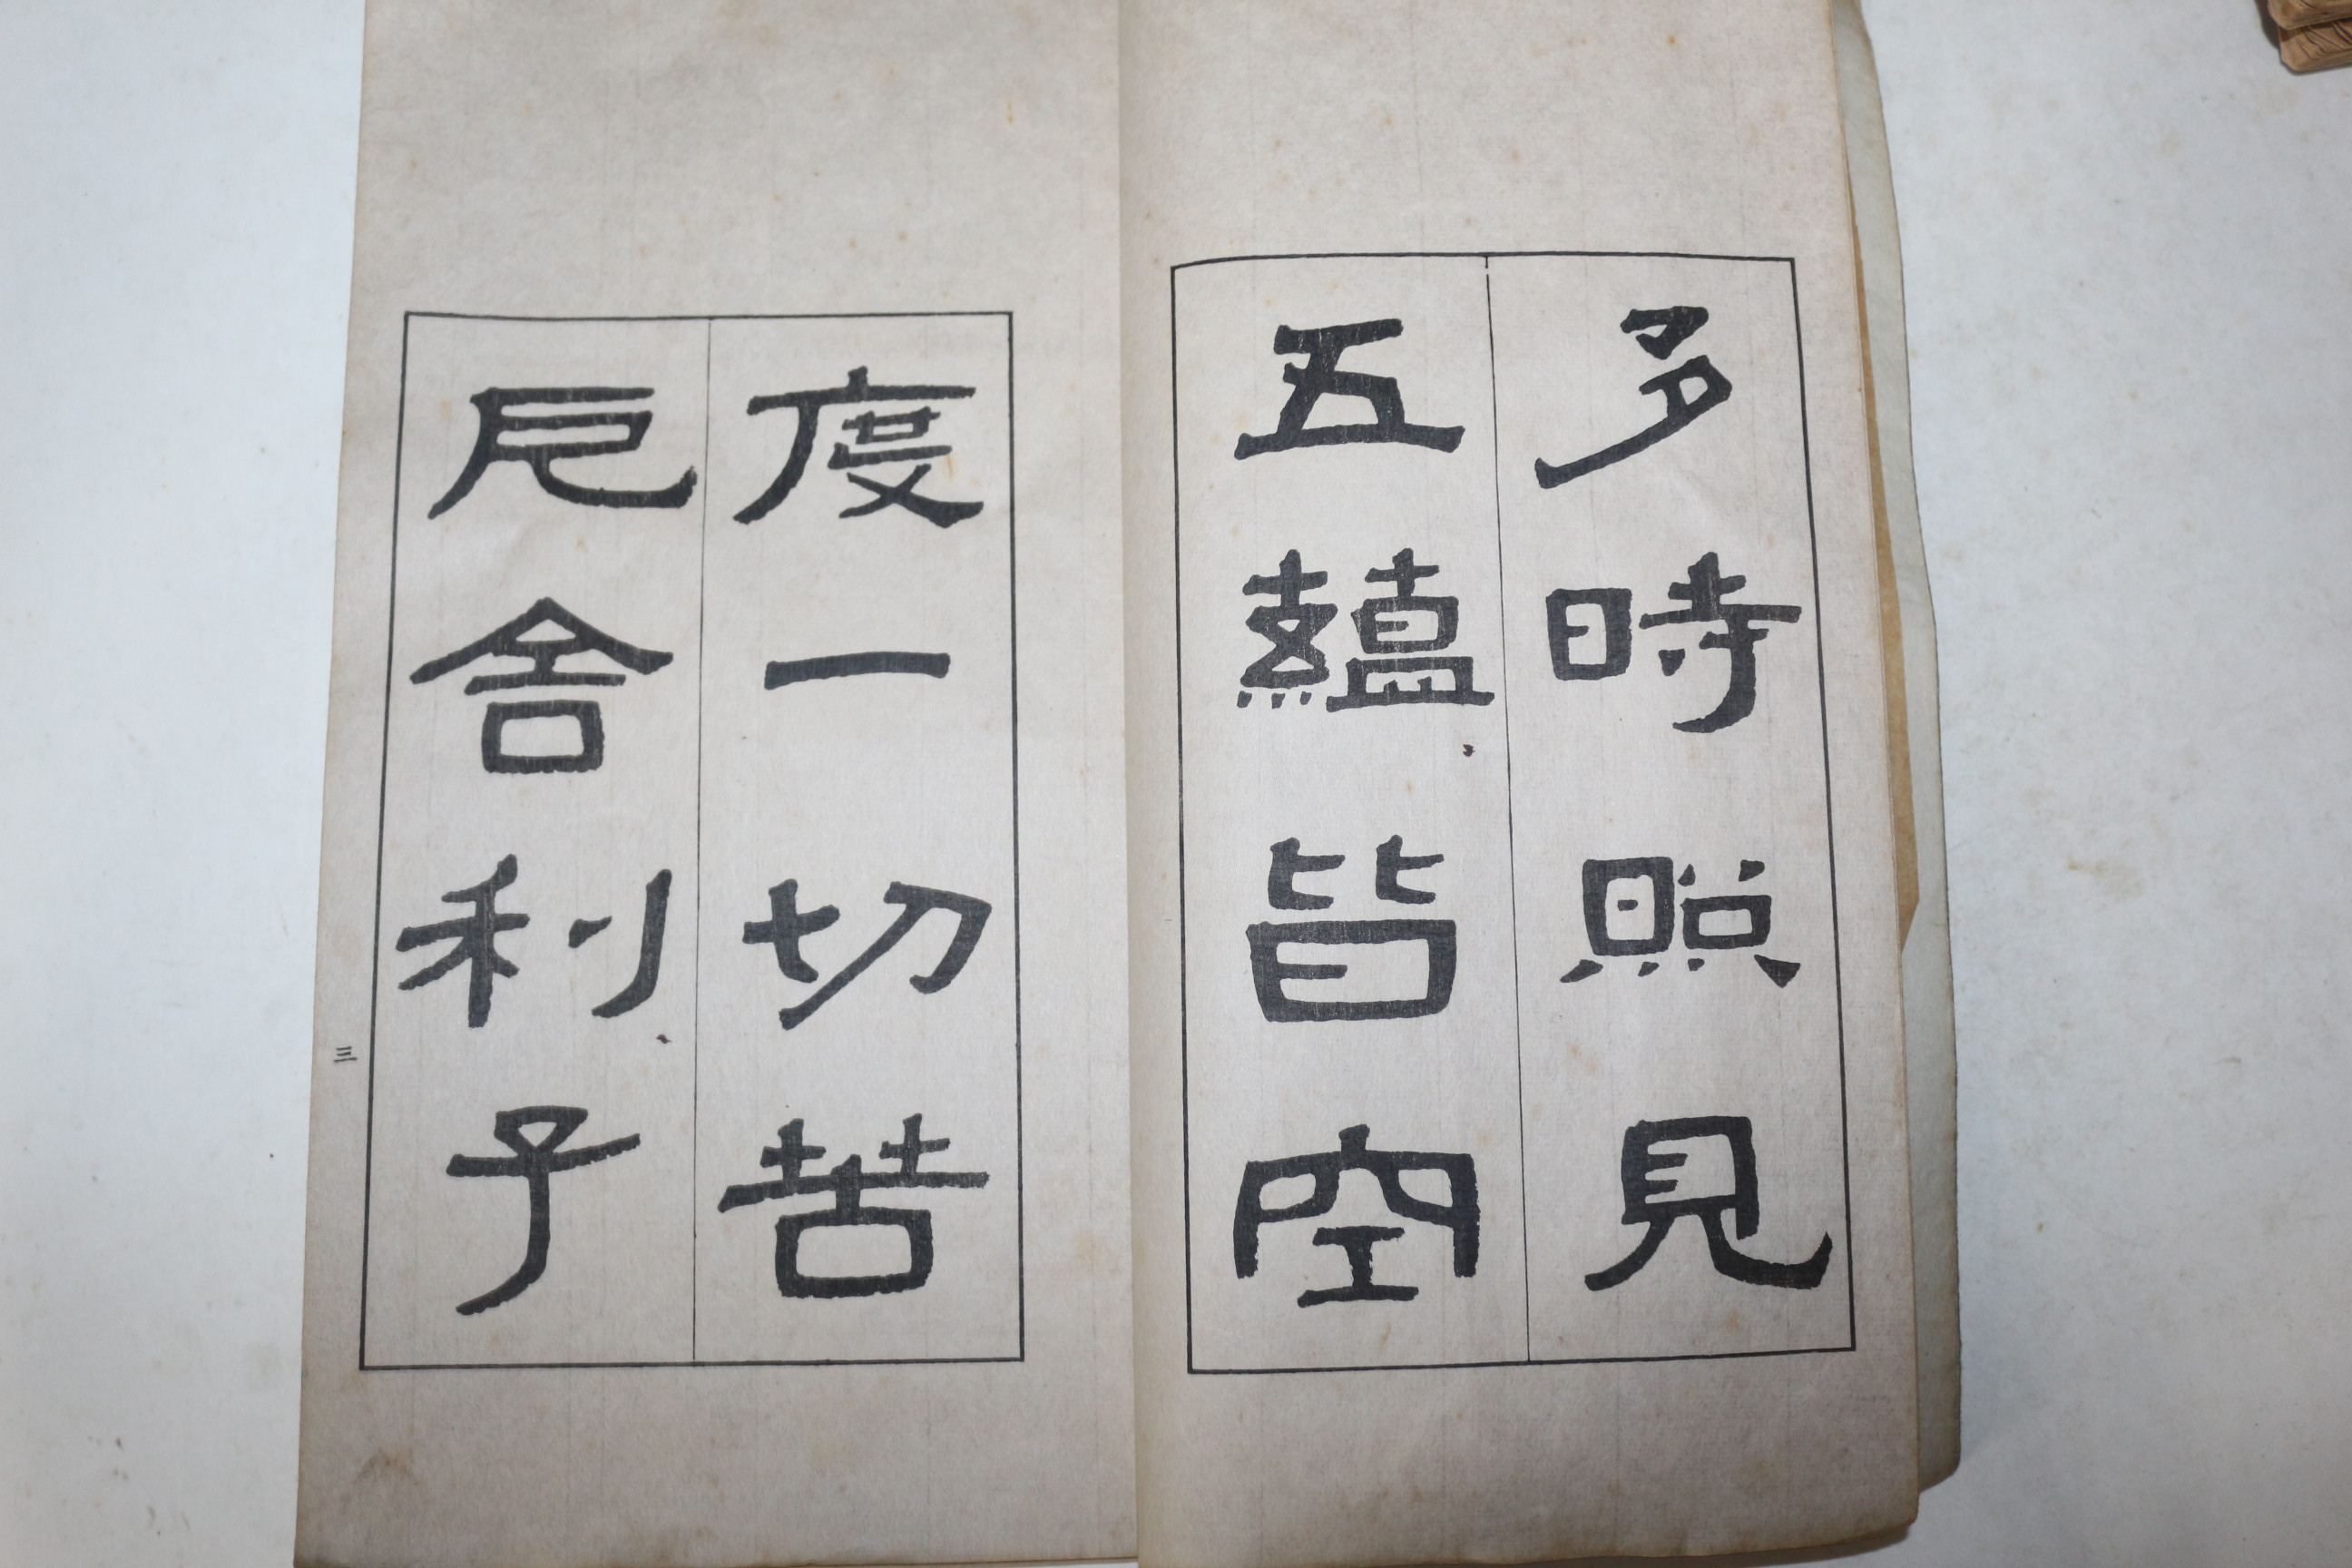 多時照見
五蘊皆空
度一切苦
厄舍利子
三